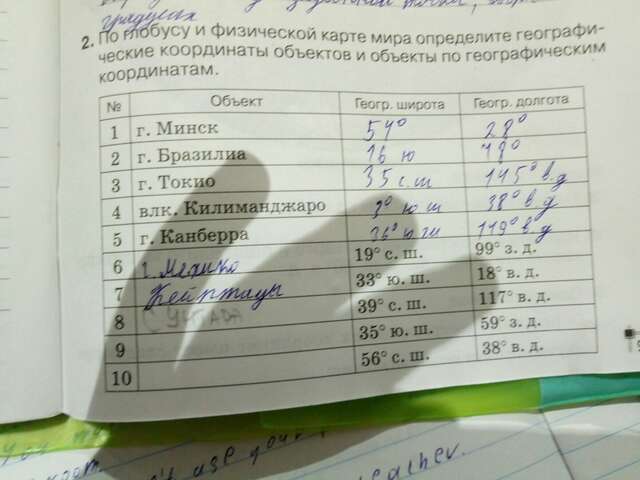 градусах
2. По глобусу и физической карте мира определите географи-
ческие координаты объектов и объекты по географическим
координатам.
№ Объект Геогр. широта Геогр. долгота
1 г. Минск 54° 28°
2 г. Бразилиа 16 ю 48°
3 г. Токио 35 с.ш 145° в.д
4 влк. Килиманджаро 3° ю ш 38° в.д
5 г. Канберра 36° ю ш 149° в.д
6 г. Мехико 19° с. ш. 99° з. д.
7 Кейптаун 33° ю. ш. 18° в. д.
8 39° с. ш. 117° в. д.
9 35° ю. ш. 59° з. д.
10 56° с. ш. 38° в. д.
You
use your
teacher.